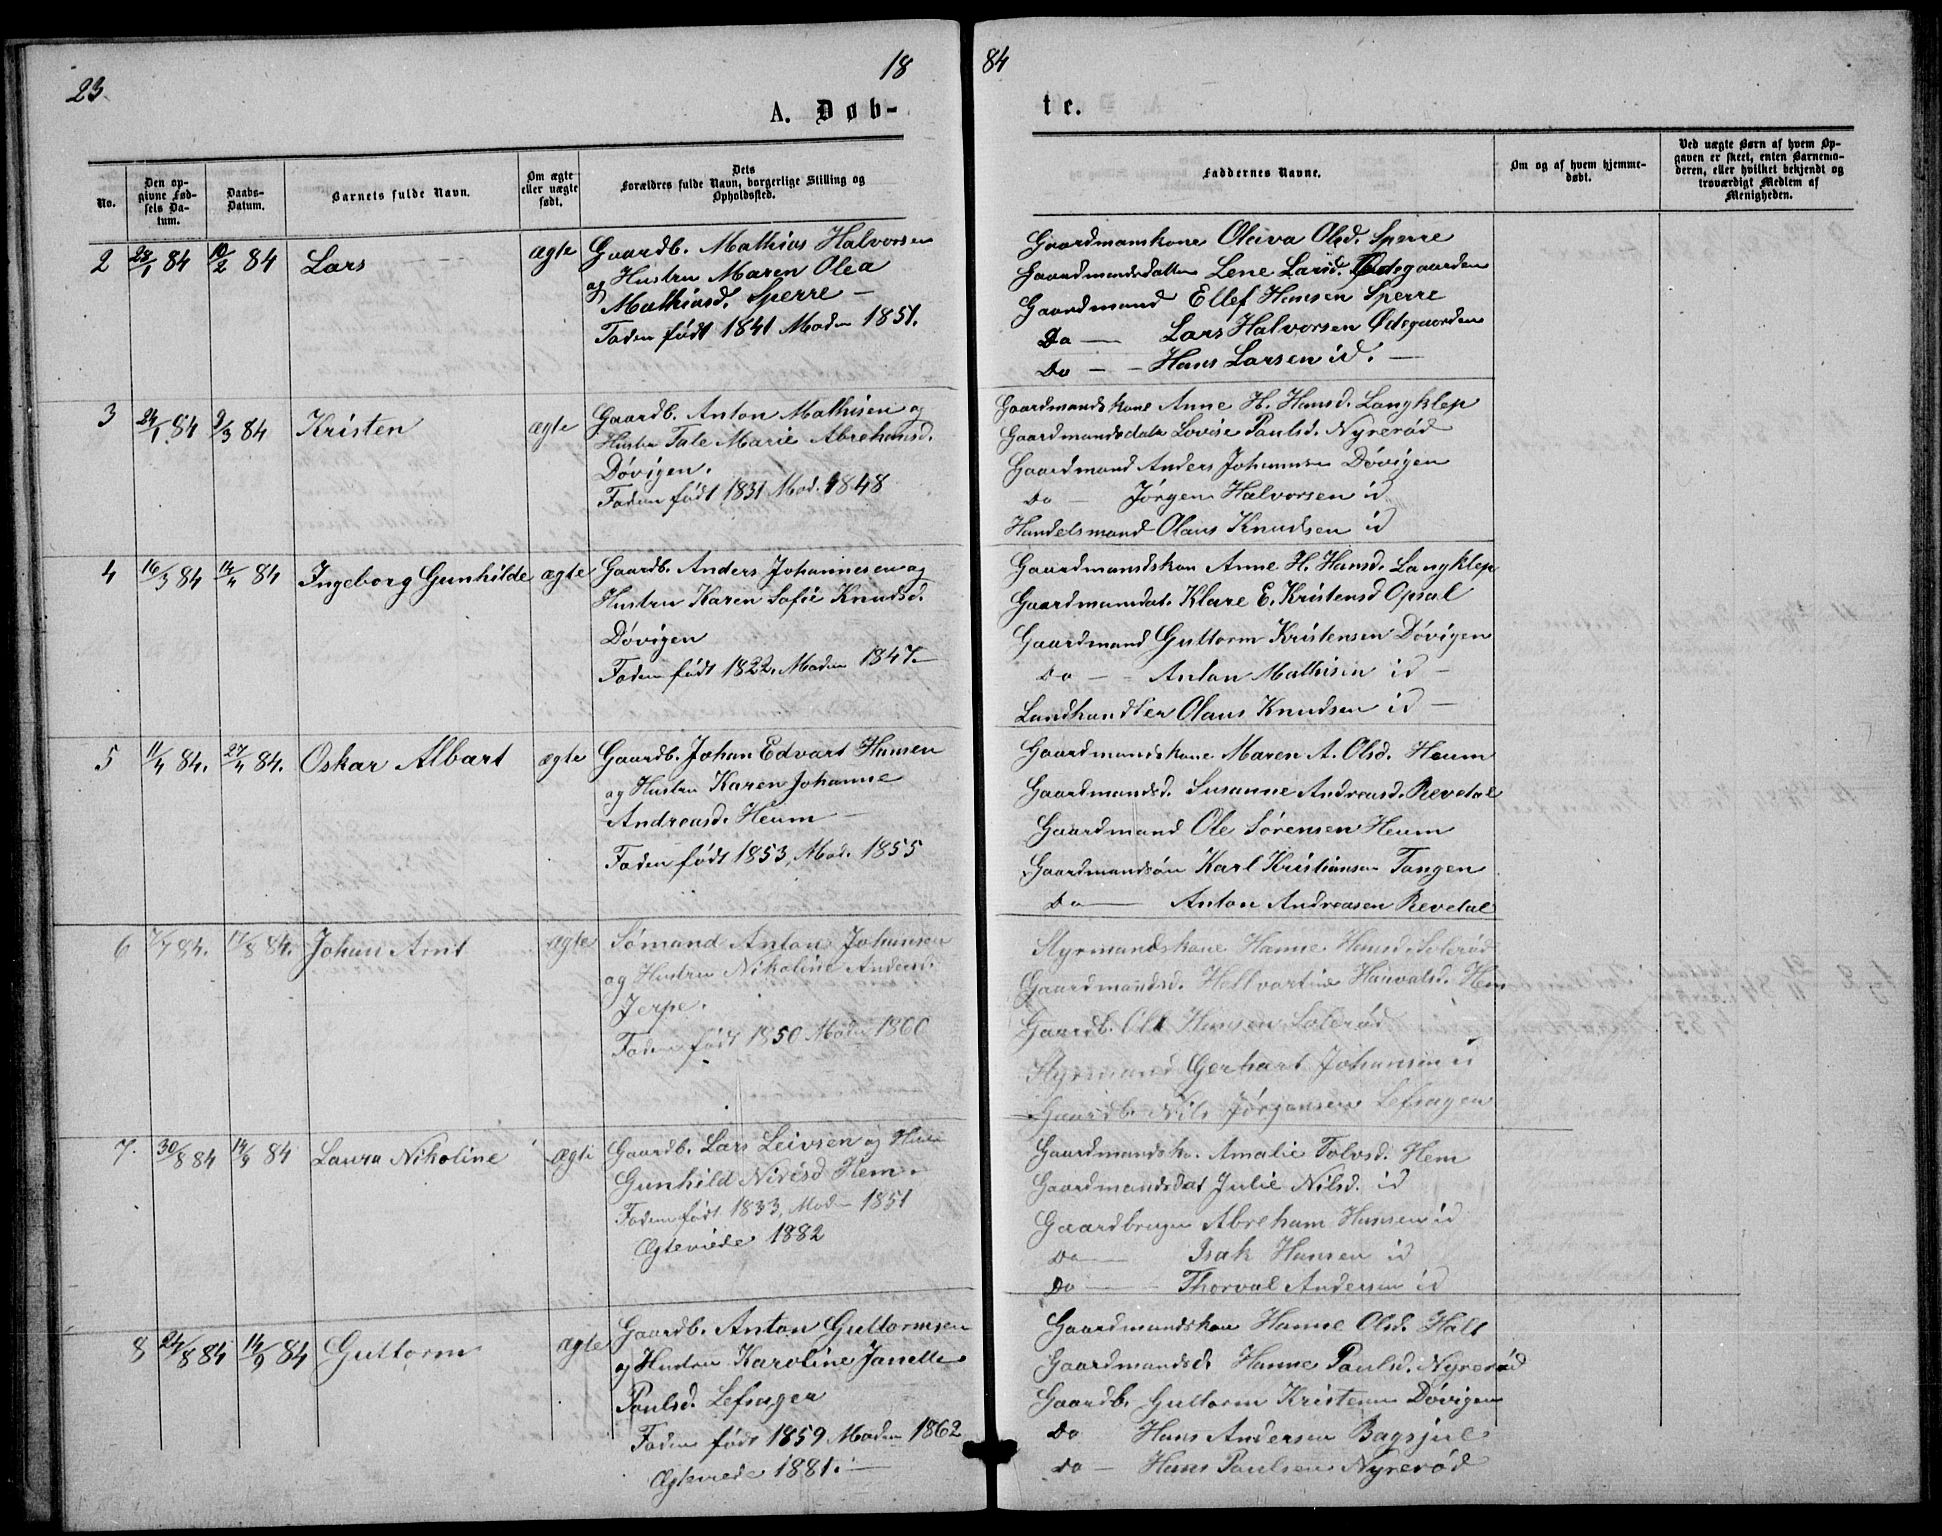 23
18
84
A. Døb-
te.
No.
Den op-
givne Fød-
sels Da-
tum.
Daabs-
Datum.
Barnets fulde Navn.
Om ægte
eller uægte
født.
Dets
Forældres fulde Navn, borgerlige Stilling og
Opholdssted.
Faddernes Navne.
Om og af hvem hjemme-
døbt.
Ved uægte Børn af hvem Op-
gaven er skeet, enten Barnemo-
deren, eller hvilket bekjendt og
troværdigt Medlem af
Menigheden.
2 28/1 84 10/2 84 Lars ægte
Gaardb. Mathias Halvorsen
og Hustru Maren Olea
Mathiasd. Sperre –
Faden født 1841 Moden 1851.
Gaardmanskone Oleva Olsd. Sperre
Gaardmandsdatter Lene Larsd. Ødegaarden
Gaardmand Ellef Hansen Sperre
Do – Lars Halvorsen Ødegaarden
Do – – Hans Larsen id. –
3 24/1 84 9/3 84 Kristen ægte
Gaardb. Anton Mathisen og
Hustru Tale Marie Abrehamsd.
Døvigen.
Faden født 1831 Mod. 1848
Gaardmandskone Anne H. Hansd. Langklep
Gaardmandsdatr Lovise Paulsd. Nyrerød
Gaardmand Anders Johannsen Døvigen
Do – Jørgen Halvorsen id
Handelsmand Olaus Knudsen id
4 16/3 84 14/4 84 Ingeborg Gunhilde ægte
Gaardb. Anders Johannesen og
Hustru Karen Sofie Knudsd.
Døvigen
Faden født 1822, Moden 1847.–
Gaardmandskon Anne H. Hansd. Langklep
Gaardmandat. Klare E. Kristensd Opsal
Gaardmand Guttorm Kristensen Døvigen
Do – – Anton Mathisen id –
Landhandler Olaus Knudsen id –
5 11/4 84. 27/4 84. Oskar Albart ægte
Gaardb. Johan Edvart Hansen
og Hustru Karen Johanne
Andreasd. Heum –
Faden født 1853, Mod. 1855
Gaardmandskone Maren A. Olsd. Heum
Gaardmandsd. Susanne Andreasd. Revetal
Gaardmand Ole Sørensen Heum
Gaardmandsøn Karl Kristiansen Tangen
Do – Anton Andreasen Revetal
6 7/7 84. 17/8 84. Johan Arnt ægte
Sømand Anton Johansen
og Hustru Nikoline Andersd.
Jerpe.
Faden født 1850 Moden 1860
Styrmandskone Hanne Hansd. Solerød
Gaardmandsd. Hellvartine Harvalsd. Hem
Gaardb. Ole Hansen Solerød
Styrmand Gerhart Johansen id
Gaardb. Nils Jørgensen Lefsagen
7. 30/8 84 14/9 84 Laura Nikoline ægte
Gaardb. Lars Leivsen og Hustru
Gunhild Nirisd Hem.
Faden født 1833, Moden 1851
Ægteviede 1882
Gaardmandsko. Amalie Tolvsd. Hem
Gaardmandsdat Julie Nilsd. id
Gaardbruger Abreham Hansen id
Do – Isak Hansen id
Do – – Thorval Andersen id
8 24/8 84 14/9 84 Guttorm ægte
Gaardb. Anton Guttormsen
og Hustru Karoline Janette
Paulsd. Lefsagen
Faden født 1859 Moden 1862
Ægteviede 1881. –
Gaardmandskon Hanne Olsd. Holt
Gaardmandsd. Hanne Paulsd. Nyrerød
Gaardb. Guttorm Kristensen Døvigen
Do Hans Andersen Bagsjul
Do – Hans Paulsen Nyrerød